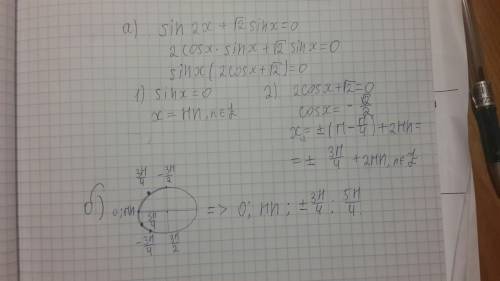 а) sin 2x + √2 sinx = 0
2cosx · sinx + √2 sinx = 0
sinx(2cosx + √2) = 0
1) sinx = 0
x = πn, n∈Z
2) 2cosx + √2 = 0
cosx = -√2/2
x = ±(π - π/4) + 2πn =
= ± 3π/4 + 2πn, n∈Z
б)
3π/4 -3π/2
0; πn
3π/4
-3π/4 3π/2
=> 0; πn; ± 3π/4; 5π/4